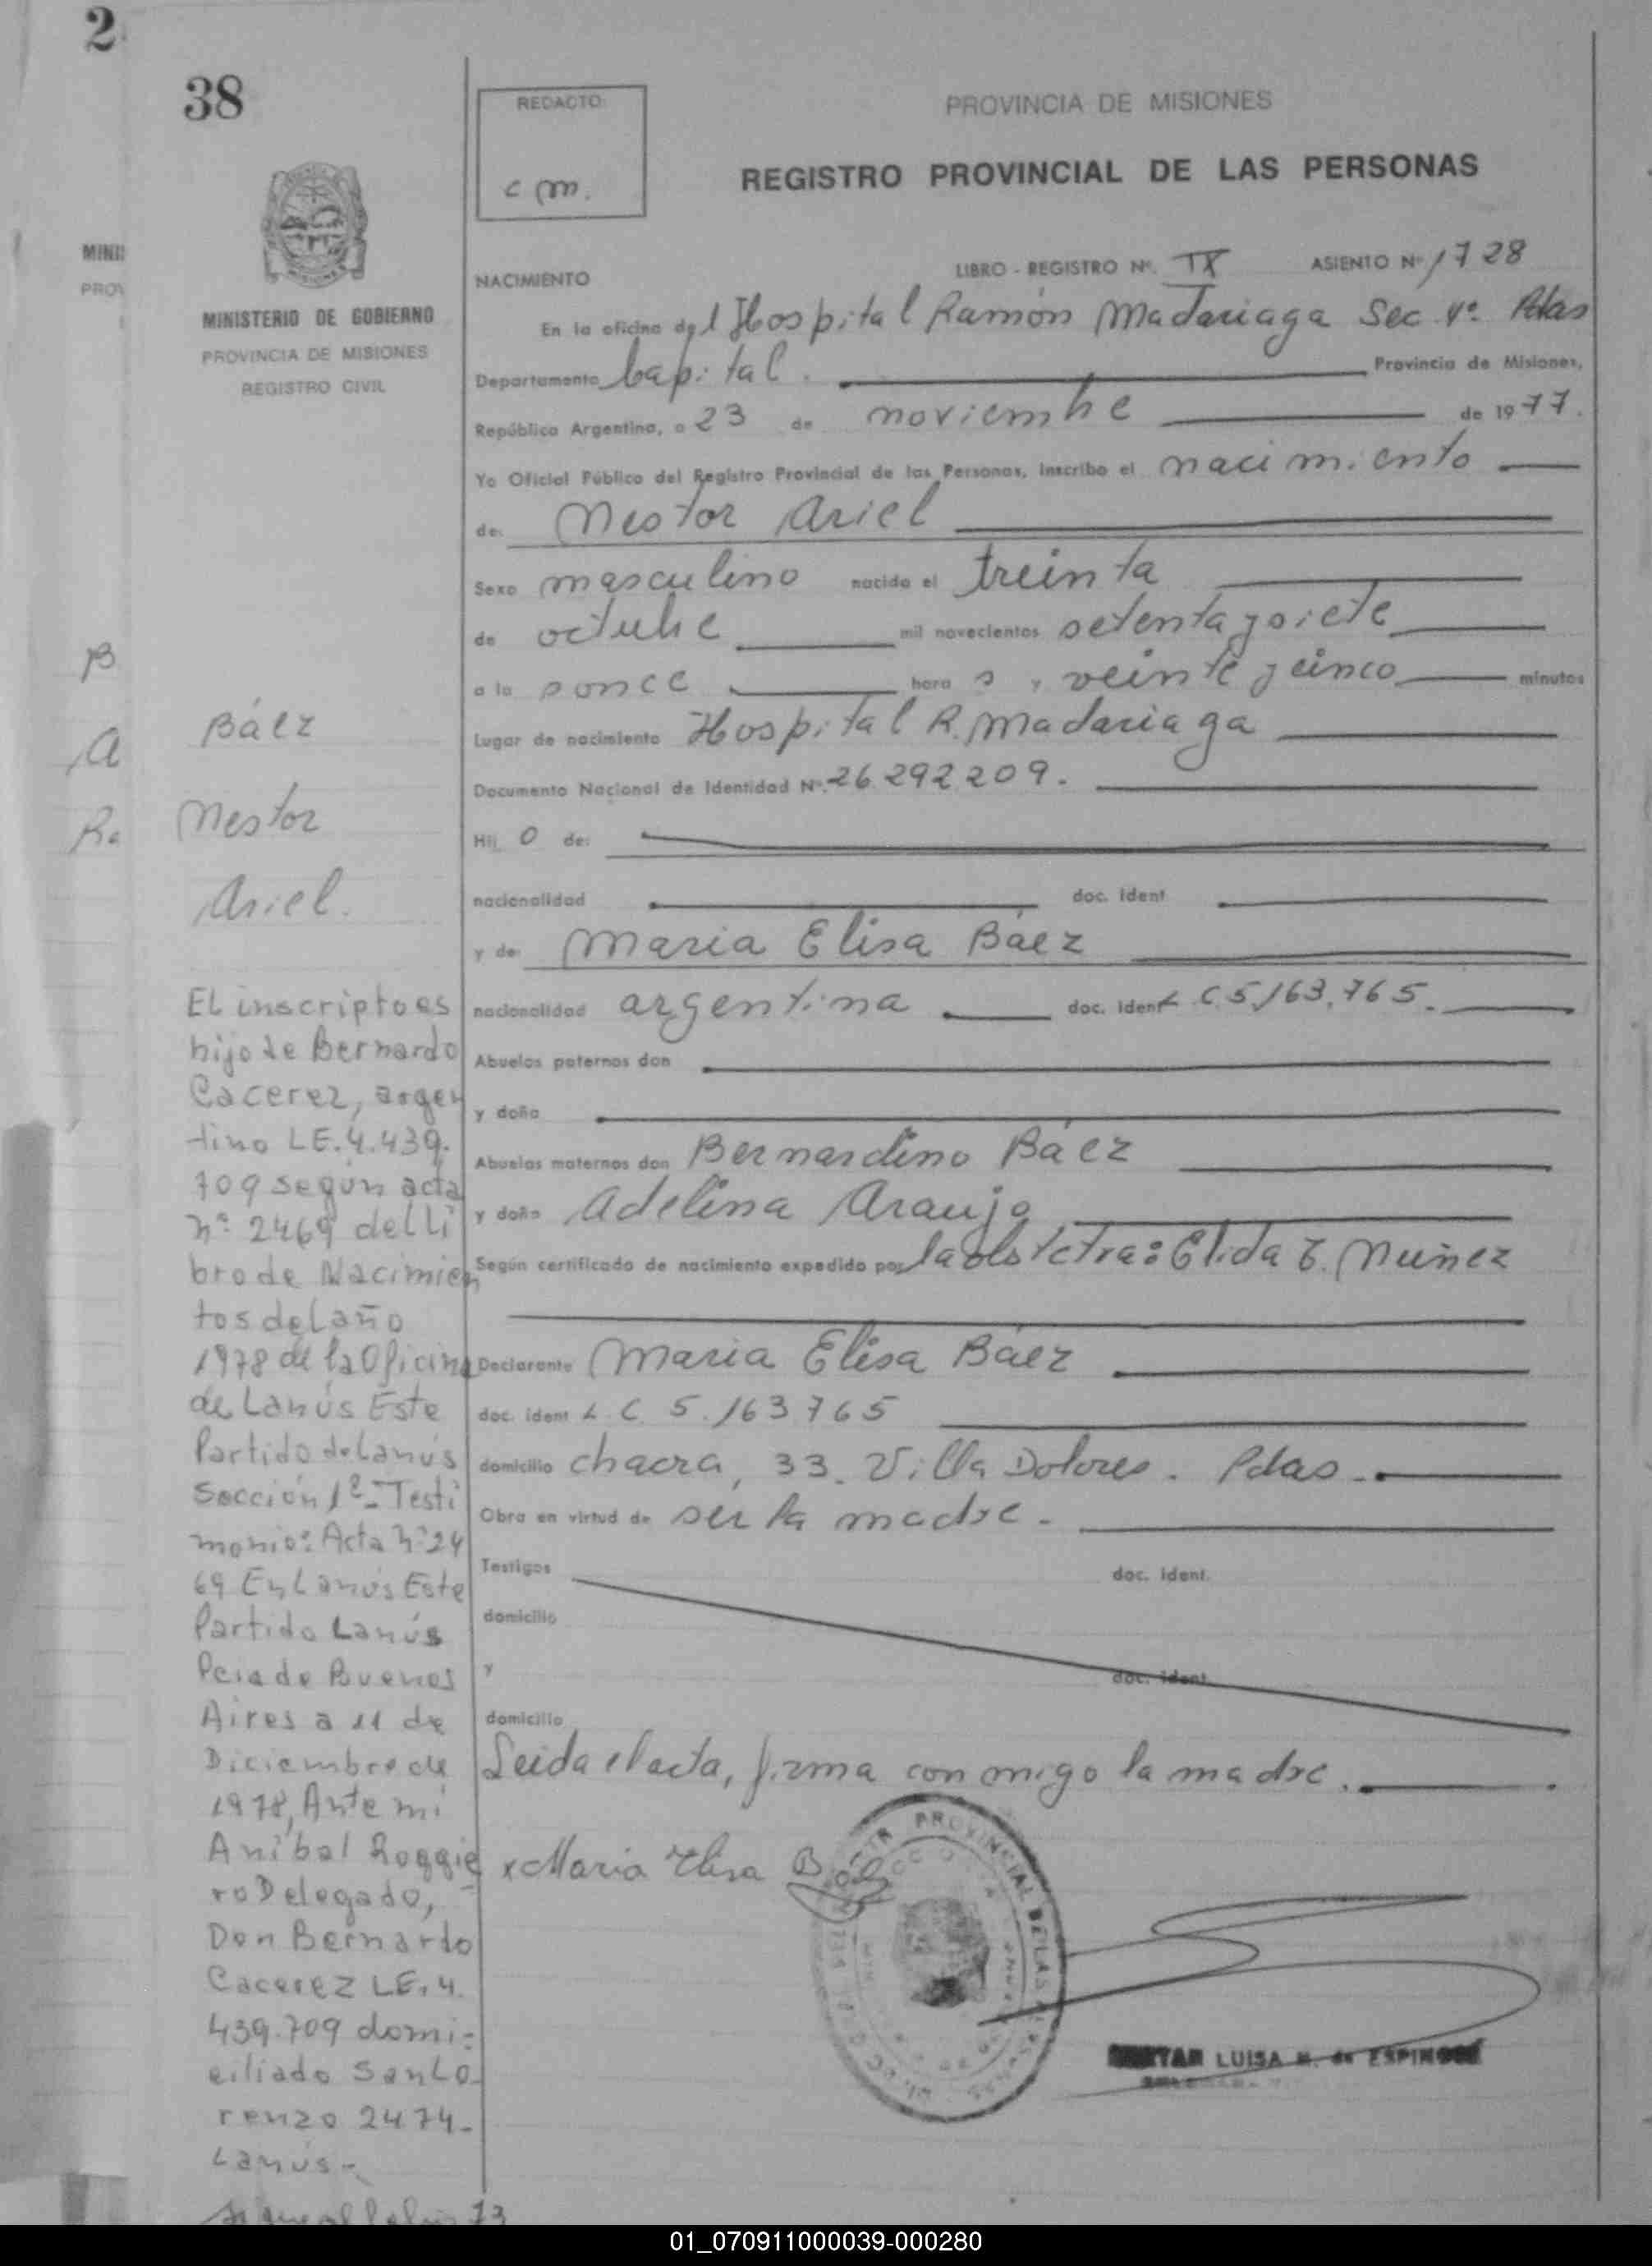 2
38
REDACTO:
c m.
PROVINCIA DE MISIONES
REGISTRO PROVINCIAL DE LAS PERSONAS
MINIS
PROV
MINISTERIO DE GOBIERNO
PROVINCIA DE MISIONES
REGISTRO CIVIL
NACIMIENTO
LIBRO - REGISTRO Nº. IX ASIENTO Nº 1728
En la oficina del Hospital Ramón Madariaga Sec Pdas
Departamento Capital. Provincia de Misiones,
República Argentina, a 23 de noviembre de 1977.
Yo Oficial Público del Registro Provincial de las Personas, inscribo el nacimiento
de: Nestor Ariel
Sexo masculino nacido el treinta
de octubre mil novecientos setenta y siete
a la s once hora s y veinte y cinco minutos
Lugar de nacimiento Hospital R. Madariaga
Documento Nacional de Identidad Nº. 26.292.209.
Hij o de:
nacionalidad doc. ident
y de Maria Elisa Báez
nacionalidad argentina doc. ident L C 5.163.765.
Abuelos paternos don
y doña
Abuelos maternos don Bernardino Báez
y doña Adelina Araujo
Según certificado de nacimiento expedido por la obstetra: Elida E. Nuñez
Declarante Maria Elisa Báez
doc. ident L. C. 5.163765
domicilio chacra, 33. Villa Dolores. Pdas.
Obra en virtud de ser la madre.
Testigos doc. ident.
domicilio
y doc. ident.
domicilio
Leida el acta, firma conmigo la madre.
x Maria Elisa Baez
LUISA de ESPINOSA
B
A
Re
Báez
Nestor
Ariel.
El inscripto es
hijo de Bernardo
Cacerez, argen
tino LE. 4.439.
709 según acta
nº 2469 del Li
bro de Nacimien
tos del año
1978 de la Oficina
de Lanús Este
Partido de Lanús
Sección 1ª - Testi
monio: Acta nº 24
69 En Lanús Este
Partido Lanús
Pcia de Buenos
Aires a 11 de
Diciembre de
1978, Ante mi
Anibal Roggie
ro Delegado,
Don Bernardo
Cacerez LE. 4.
439.709 domi-
ciliado San Lo
renzo 2474-
Lanús-
Sigue al folio 73
01_070911000039-000280